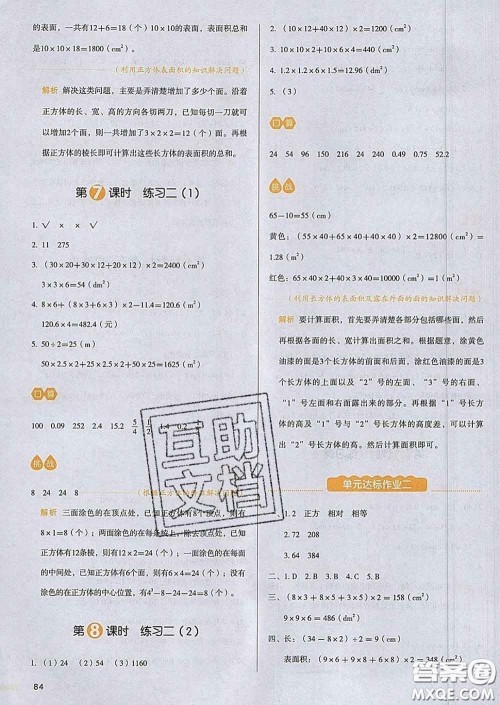 的表面，一共有12+6=18（个）10×10的表面。表面积总和
是10×10×18=1800（cm²）
（利用正方体表面积的知识解决问题）
解析 解决这类问题，主要是弄清楚增加了多少个面。沿着
正方体的长、宽、高的方向各切两刀，已知每切一刀就可
以增加2个面，所以一共增加了3×2×2=12（个）面。再根
据正方体的棱长即可计算出这些长方体的表面积的总和。
第7课时 练习二（1）
1. √ × × √
2. 11 275
3. （30×20+30×12+20×12）×2=2400（cm²）
3×3×6=54（dm²）
4. 8×6+（8×3+6×3）×2-11.4=120.6（m²）
120.6×4=482.4（元）
5. 50÷2=25（m）
50×2.5×2+25×2.5×2+50×25=1625（m²）
口算
100 0.09 252 2.4 15.2 1.4 0.2
挑战
8 24 24 8
解析 三面涂色的在顶点处，已知正方体有8个顶点，则有
8×1=8（个）；两面涂色的在每条棱上（除去顶点处），已知
正方体有12条棱，则有12×2=24（个）；一面涂色的在每面
的中间处，已知正方体有6个面，则有6×4=24（个）；没有
涂色的在正方体的中心位置，有4³-8-24-24=8（个）。
第8课时 练习二（2）
1. （1）24 （2）54 （3）1160
84
2. （10×5+10×2+5×2）×2=160（cm²）
3. 12×10×2+10×10×2=440（dm²）
4. 1.2×1.2×6+1.2×1.2×3=12.96（dm²）
5. （3）
口算
24 54 96 150 216 24 240 0.49 0.75 52.2
挑战
65-10=55（cm）
黄色：（55×40+65×40+40×40）×2=12800（cm²）=
1.28（m²）
红色：65×40×2+40×40×3=10000（cm²）=1（m²）
（利用长方体的表面积及露在外面的面的知识解决问题）
解析 要计算面积，首先要弄清楚各部分包括哪些面，然后
再根据各个面的长和宽计算出面积之和。根据题意，涂黄色
油漆的面是3个长方体的前面和后面，涂红色油漆的面是3
个长方体的上面以及“2”号的左面、“3”号的右面、
“1”号左面和右面露出来的部分。我们可以根据“1”号
长方体的高及“1”号与“2”号长方体的高度差，计算出
“2”号长方体的高，从而进一步计算出面积。
单元达标作业二
一、1. 2 正方 相对 相等
2. 72 208
3. 64 288
二、1. D 2. B 3. A 4. B 5. B
三、（8×3+8×5+3×5）×2=158（cm²）
9×9×6=486（dm²）
四、长：（34-8×2）÷2=9（cm）
表面积：（9×8+9×6+8×6）×2=348（cm²）
互助
文档
答案圈
MXQE.COM